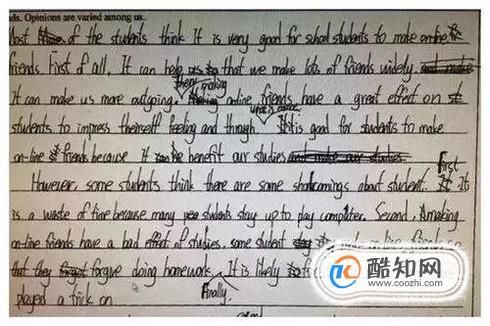 nds. Opinions are varied among us.
Most of the students think It is very good for school students to make on-line
friends. First of all, It can help us that we make lots of friends widely and make
It can make us more outgoing. Then, making on-line friends have a great effect on
students to impress theirself feeling and through. What is more, It is good for students to make
on-line friends because It can be benefit our studies and make our studies.
However, some students think there are some shortcomings about student. First, It
is a waste of time because many students stay up to pay computer. Second, making
on-line friends have a bad effect of studies. some student make on-line friends so
that they forgive doing homework. Finally, It is likely
played a trick on.
酷知网
www.coozhi.com